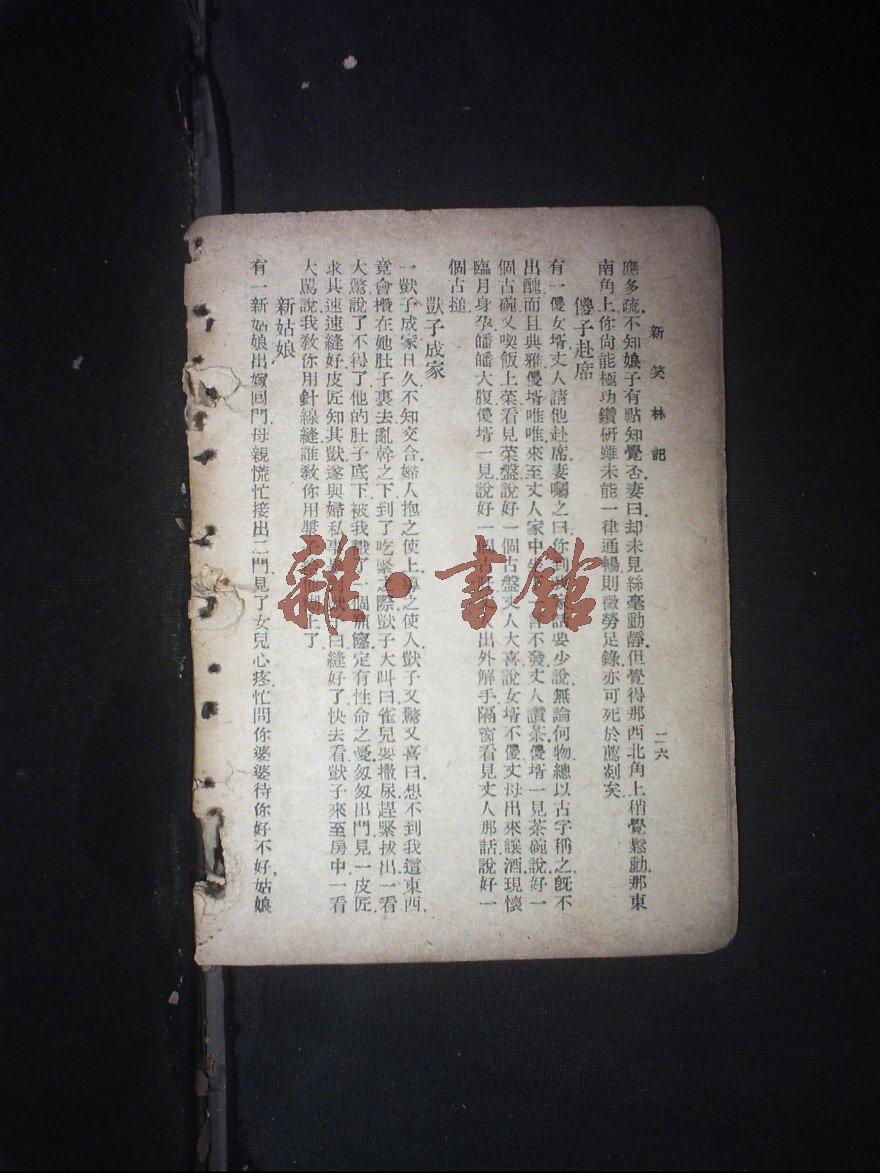 新笑林記
二六
應多疏不知娘子有點知覺否妻曰却未見絲毫動靜但覺得那西北角上稍覺鬆動那東
南角上你尙能極功鑽研雖未能一律通暢則微勞足錄亦可死於薦剡矣
傻子赴席
有一傻女壻丈人請他赴席妻囑之曰你到我家話要少說無論何物總以古字稱之旣不
出醜而且典雅傻壻唯唯來至丈人家中一言不發丈人讓茶傻壻一見茶碗說好一
個古碗又喫飯上菜看見菜盤說好一個古盤丈人大喜說女壻不傻丈母出來讓酒現懷
臨月身孕皤皤大腹傻壻一見說好一個古出外解手隔窗看見丈人那話說好一
個古搥
獃子成家
一獃子成家日久不知交合婦人抱之使上導之使入獃子又驚又喜曰想不到我這東西
竟會攢在她肚子裏去亂幹之下到了吃緊之際獃子大叫曰雀兒要撒尿趕緊拔出一看
大驚說了不得了他的肚子底下被我戳了一個窟窿定有性命之憂匆匆出門見一皮匠
求其速速縫好皮匠知其獃遂與婦私事獃子曰縫好了快去看獃子來至房中一看
大罵說我敎你用針線縫誰敎你用漿子上了
新姑娘
有一新姑娘出嫁回門母親慌忙接出二門見了女兒心疼忙問你婆婆待你好不好姑娘
雜·書館